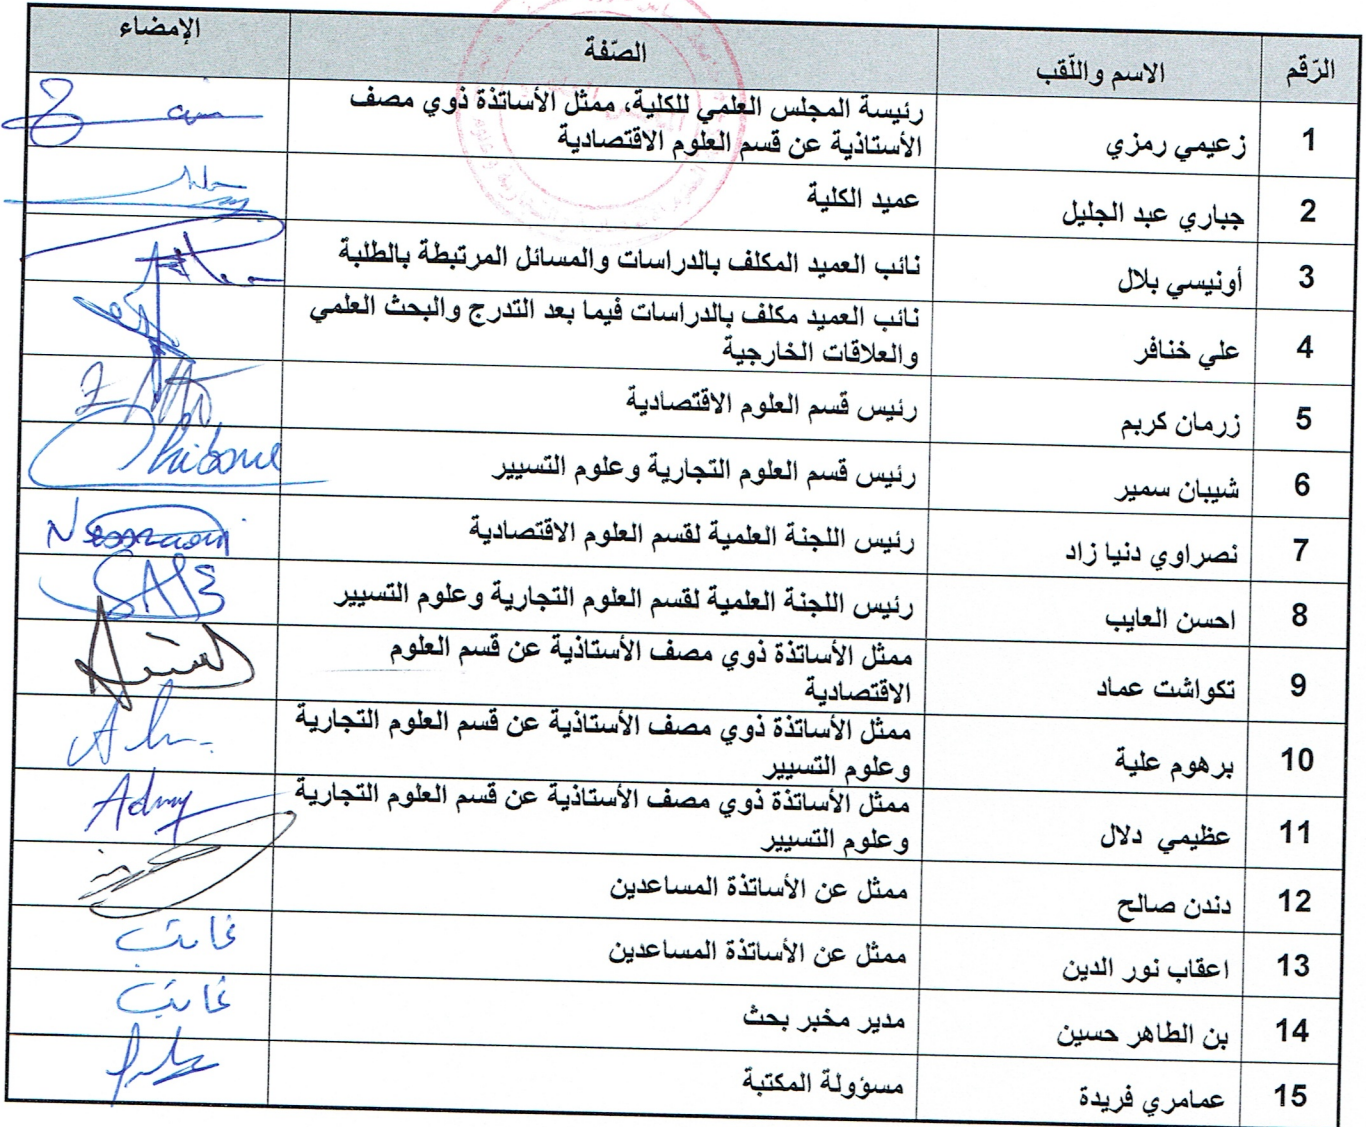 الرّقم الاسم واللّقب الصّفة الإمضاء
1 زعيمي رمزي رئيسة المجلس العلمي للكلية، ممثل الأساتذة ذوي مصف
الأستاذية عن قسم العلوم الاقتصادية
2 جباري عبد الجليل عميد الكلية
3 أونيسي بلال نائب العميد المكلف بالدراسات والمسائل المرتبطة بالطلبة
4 علي خنافر نائب العميد مكلف بالدراسات فيما بعد التدرج والبحث العلمي
والعلاقات الخارجية
5 زرمان كريم رئيس قسم العلوم الاقتصادية
6 شيبان سمير رئيس قسم العلوم التجارية وعلوم التسيير
7 نصراوي دنيا زاد رئيس اللجنة العلمية لقسم العلوم الاقتصادية
8 احسن العايب رئيس اللجنة العلمية لقسم العلوم التجارية وعلوم التسيير
9 تكواشت عماد ممثل الأساتذة ذوي مصف الأستاذية عن قسم العلوم
الاقتصادية
10 برهوم علية ممثل الأساتذة ذوي مصف الأستاذية عن قسم العلوم التجارية
وعلوم التسيير
11 عظيمي دلال ممثل الأساتذة ذوي مصف الأستاذية عن قسم العلوم التجارية
وعلوم التسيير
12 دندن صالح ممثل عن الأساتذة المساعدين
13 اعقاب نور الدين ممثل عن الأساتذة المساعدين غائب
14 بن الطاهر حسين مدير مخبر بحث غائب
15 عمامري فريدة مسؤولة المكتبة